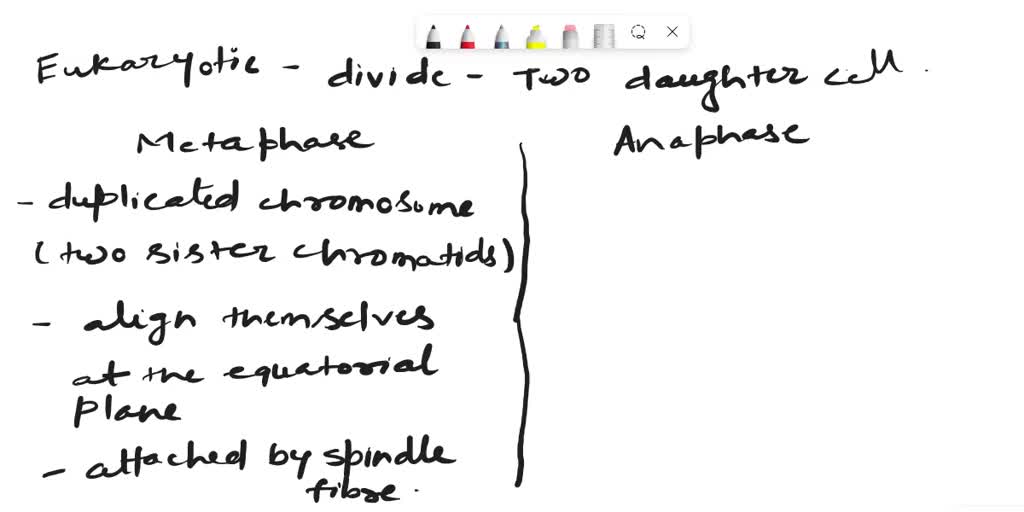 Eukaryotic - divide - Two daughter cell.
Metaphase
Anaphase
- duplicated chromosome
(two sister chromatids)
- align themselves
at the equatorial
plane
- attached by spindle
fibre.